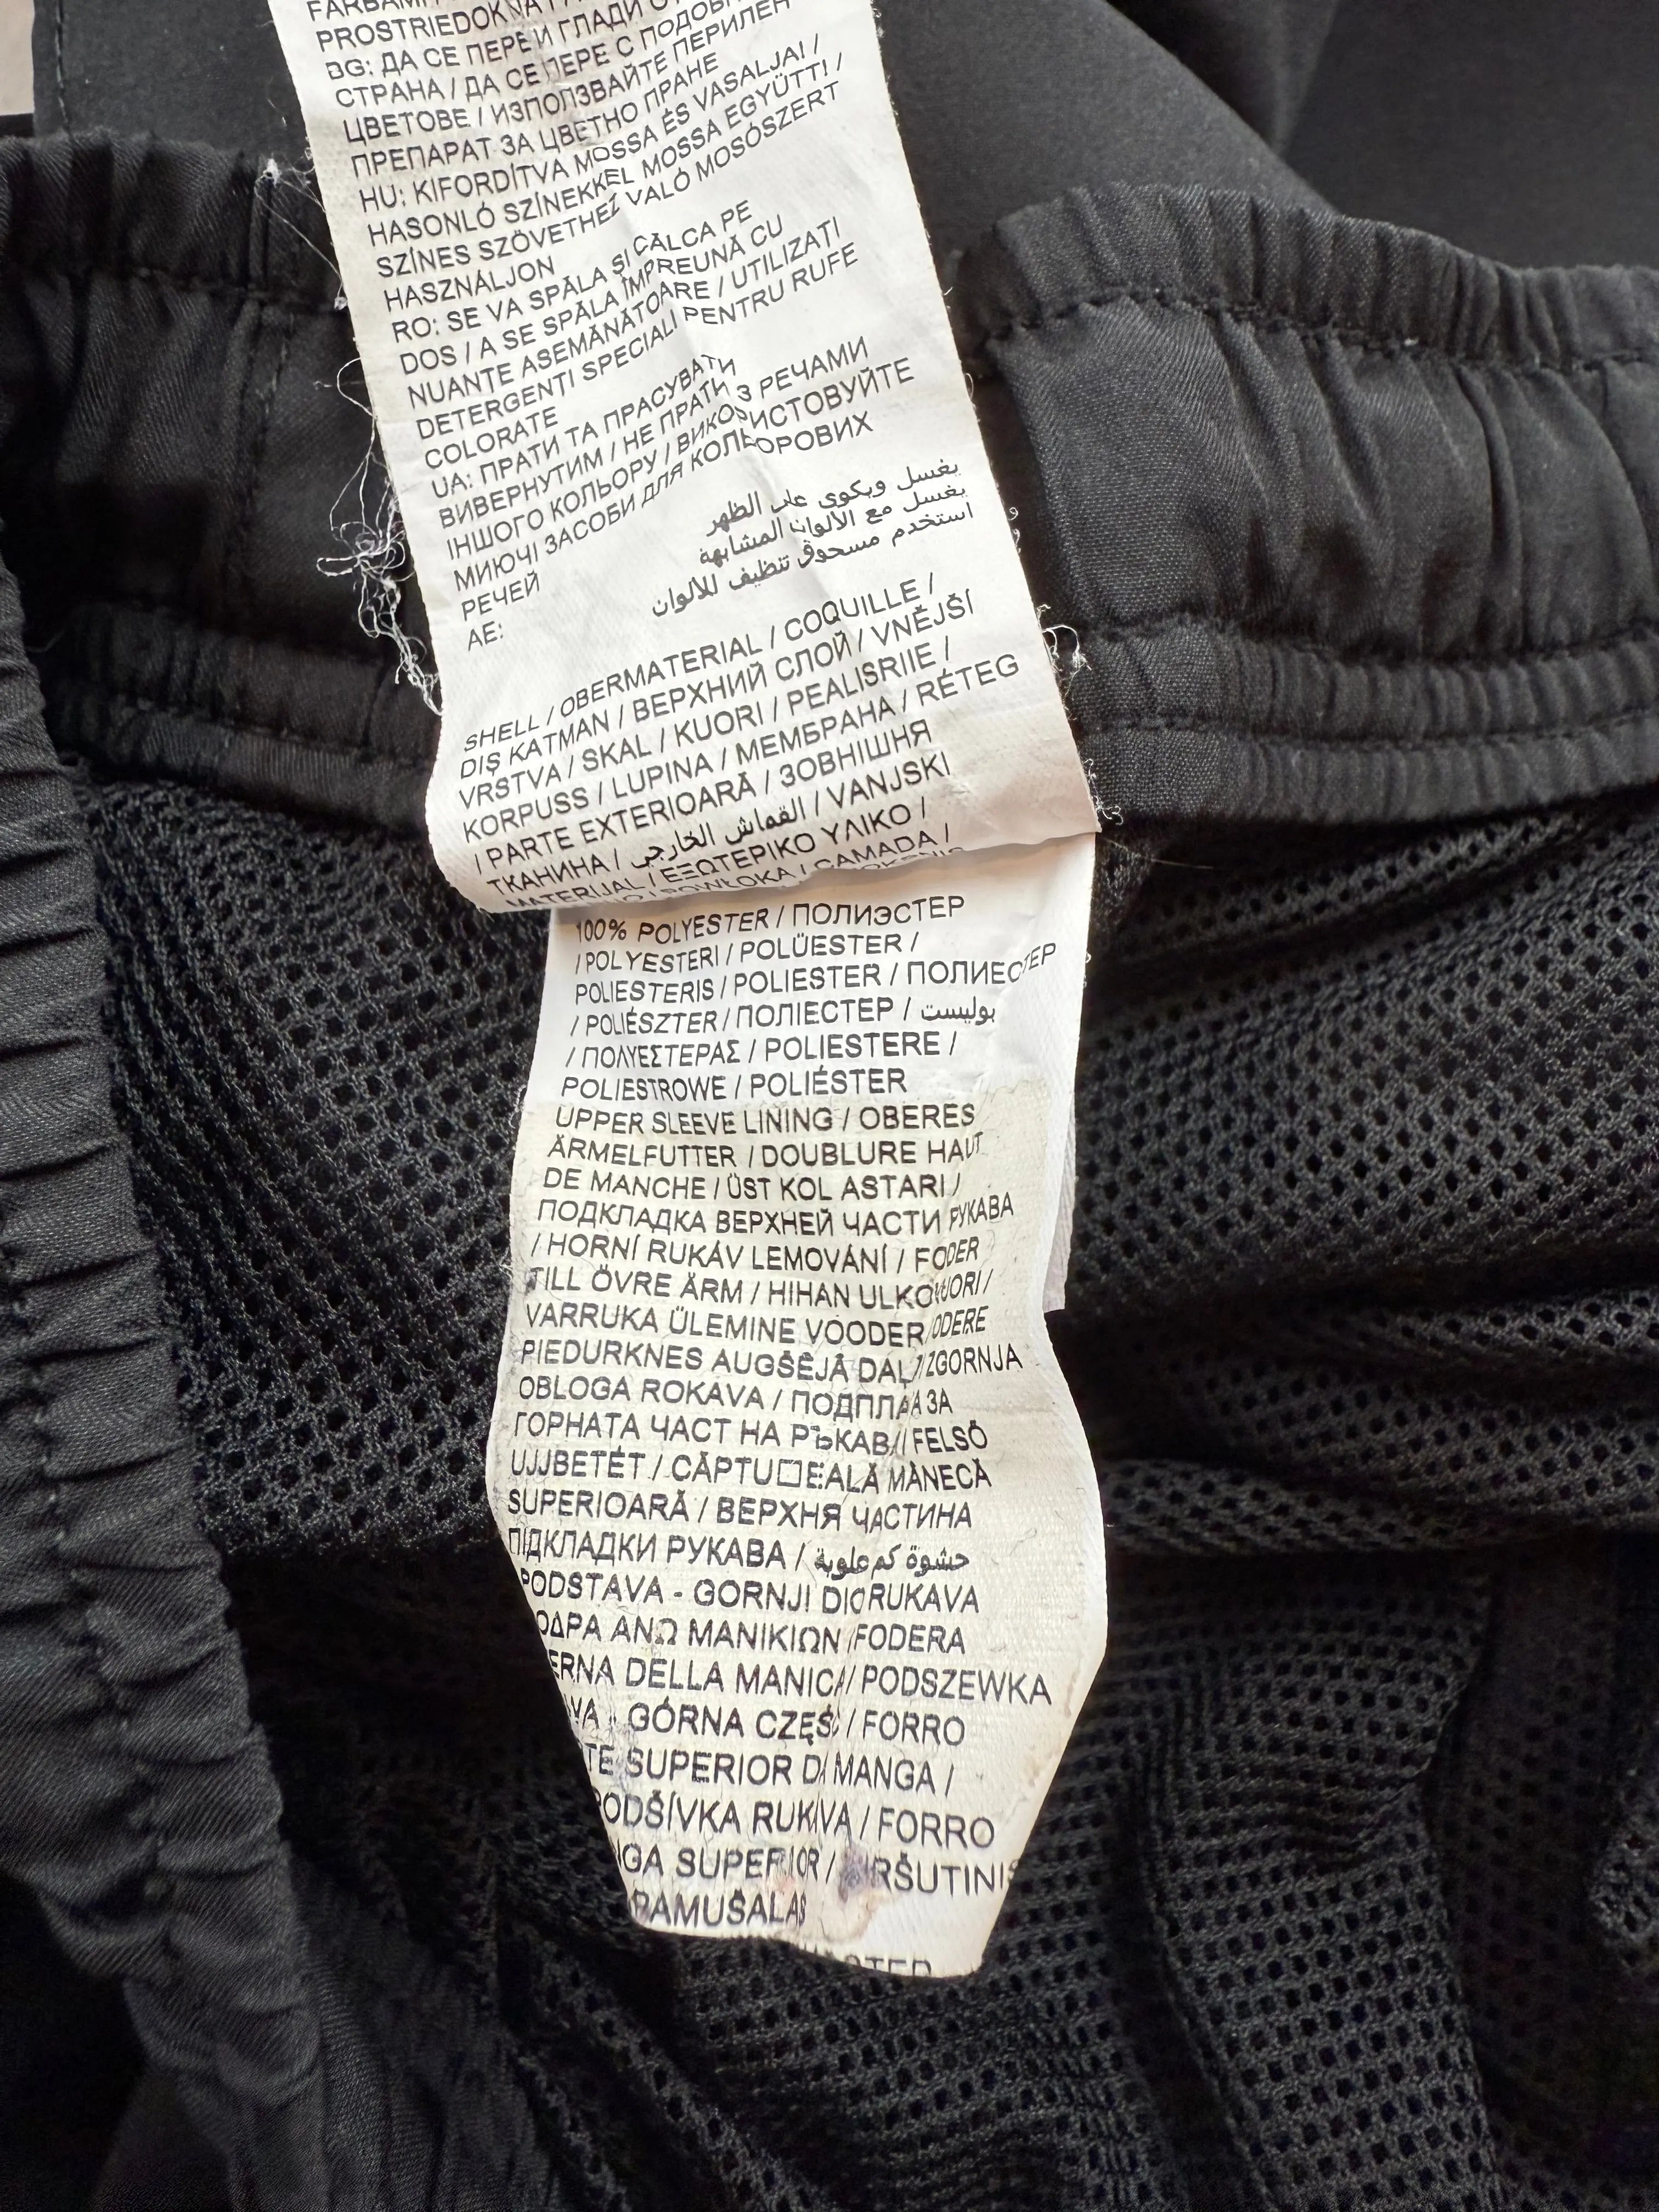 PROSTRIEDOK NA
BG: ДА СЕ ПЕРЕ И ГЛАДИ
СТРАНА / ДА СЕ ПЕРЕ С
ЦВЕТОВЕ / ИЗПОЛЗВАЙТЕ ПЕРИЛЕН
ПРЕПАРАТ ЗА ЦВЕТНО ПРАНЕ
HU: KIFORDÍTVA MOSSA ÉS VASALJA! /
HASONLÓ SZÍNEKKEL MOSSA EGYÜTT! /
SZÍNES SZÖVETHEZ VALÓ MOSÓSZERT
HASZNÁLJON
RO: SE VA SPĂLA ȘI CĂLCA PE
DOS / A SE SPĂLA ÎMPREUNĂ CU
NUANTE ASEMĂNĂTOARE / UTILIZATI
DETERGENTI SPECIALI PENTRU RUFE
COLORATE
UA: ПРАТИ ТА ПРАСУВАТИ
ВИВЕРНУТИМ / НЕ ПРАТИ З РЕЧАМИ
ІНШОГО КОЛЬОРУ / ВИКОРИСТОВУЙТЕ
МИЮЧІ ЗАСОБИ ДЛЯ КОЛЬОРОВИХ
РЕЧЕЙ
AE:
يغسل ويكوى على الظهر
يغسل مع الالوان المشابهة
استخدم مسحوق تنظيف للالوان
SHELL / OBERMATERIAL / COQUILLE /
DIŞ KATMAN / ВЕРХНИЙ СЛОЙ / VNĚJŠÍ
VRSTVA / SKAL / KUORI / PEALISRIIE /
KORPUSS / LUPINA / МЕМБРАНА / RÉTEG
/ PARTE EXTERIOARĂ / ЗОВНІШНЯ
ТКАНИНА / القماش الخارجي / VANJSKI
MATERIJAL / ΕΞΩΤΕΡΙΚΟ ΥΛΙΚΟ /
POWŁOKA / CAMADA /
100% POLYESTER / ПОЛИЭСТЕР
/ POLYESTERI / POLÜESTER /
POLIESTERIS / POLIESTER / ПОЛИЕСТЕР
/ POLIÉSZTER / ПОЛІЕСТЕР / بوليست
/ ΠΟΛΥΕΣΤΕΡΑΣ / POLIESTERE /
POLIESTROWE / POLIÉSTER
UPPER SLEEVE LINING / OBERES
ÄRMELFUTTER / DOUBLURE HAUT
DE MANCHE / ÜST KOL ASTARI /
ПОДКЛАДКА ВЕРХНЕЙ ЧАСТИ РУКАВА
/ HORNÍ RUKÁV LEMOVÁNÍ / FODER
TILL ÖVRE ÄRM / HIHAN ULKOVUORI /
VARRUKA ÜLEMINE VOODER / ODERE
PIEDURKNES AUGŠĒJĀ DAĻ / ZGORNJA
OBLOGA ROKAVA / ПОДПЛАА ЗА
ГОРНАТА ЧАСТ НА РЪКАВ / FELSŐ
UJJBETÉT / CĂPTU□EALĂ MÂNECĂ
SUPERIOARĂ / ВЕРХНЯ ЧАСТИНА
ПІДКЛАДКИ РУКАВА / حشوة كم علوية
PODSTAVA - GORNJI DIO RUKAVA
ΟΔΡΑ ΑΝΩ ΜΑΝΙΚΙΩΝ / FODERA
ERNA DELLA MANICA / PODSZEWKA
VA - GÓRNA CZĘŚ / FORRO
TE SUPERIOR DA MANGA /
PODŠÍVKA RUKÁVA / FORRO
NGA SUPERIOR / VIRŠUTINIS
PAMUŠALAS